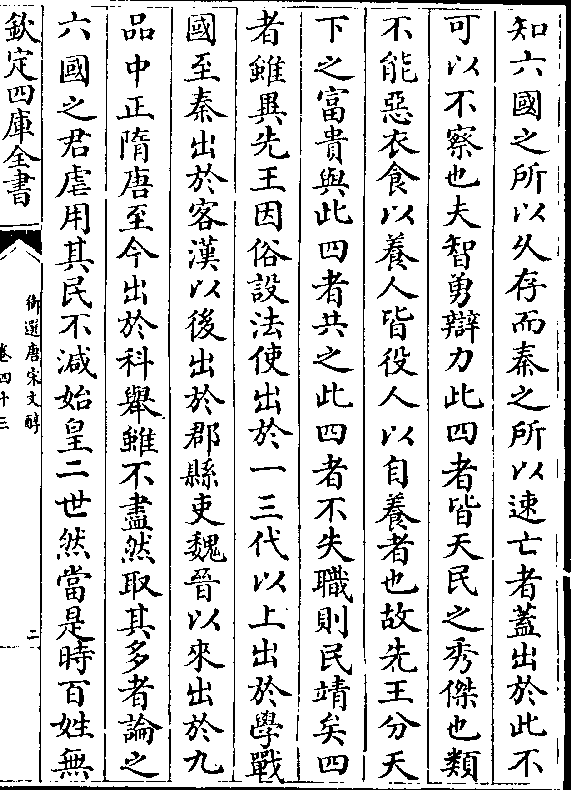 知六國之所以久存而秦之所以速亡者蓋出於此不
可以不察也夫智勇辯力此四者皆天民之秀傑也類
不能惡衣食以養人皆役人以自養者也故先王分天
下之富貴與此四者共之此四者不失職則民靖矣四
者雖異先王因俗設法使出於一三代以上出於學戰
國至秦出於客漢以後出於郡縣吏魏晉以來出於九
品中正隋唐至今出於科舉雖不盡然取其多者論之
六國之君虐用其民不減始皇二世然當是時百姓無
欽定四庫全書
御選唐宋文醇
卷四十三
二